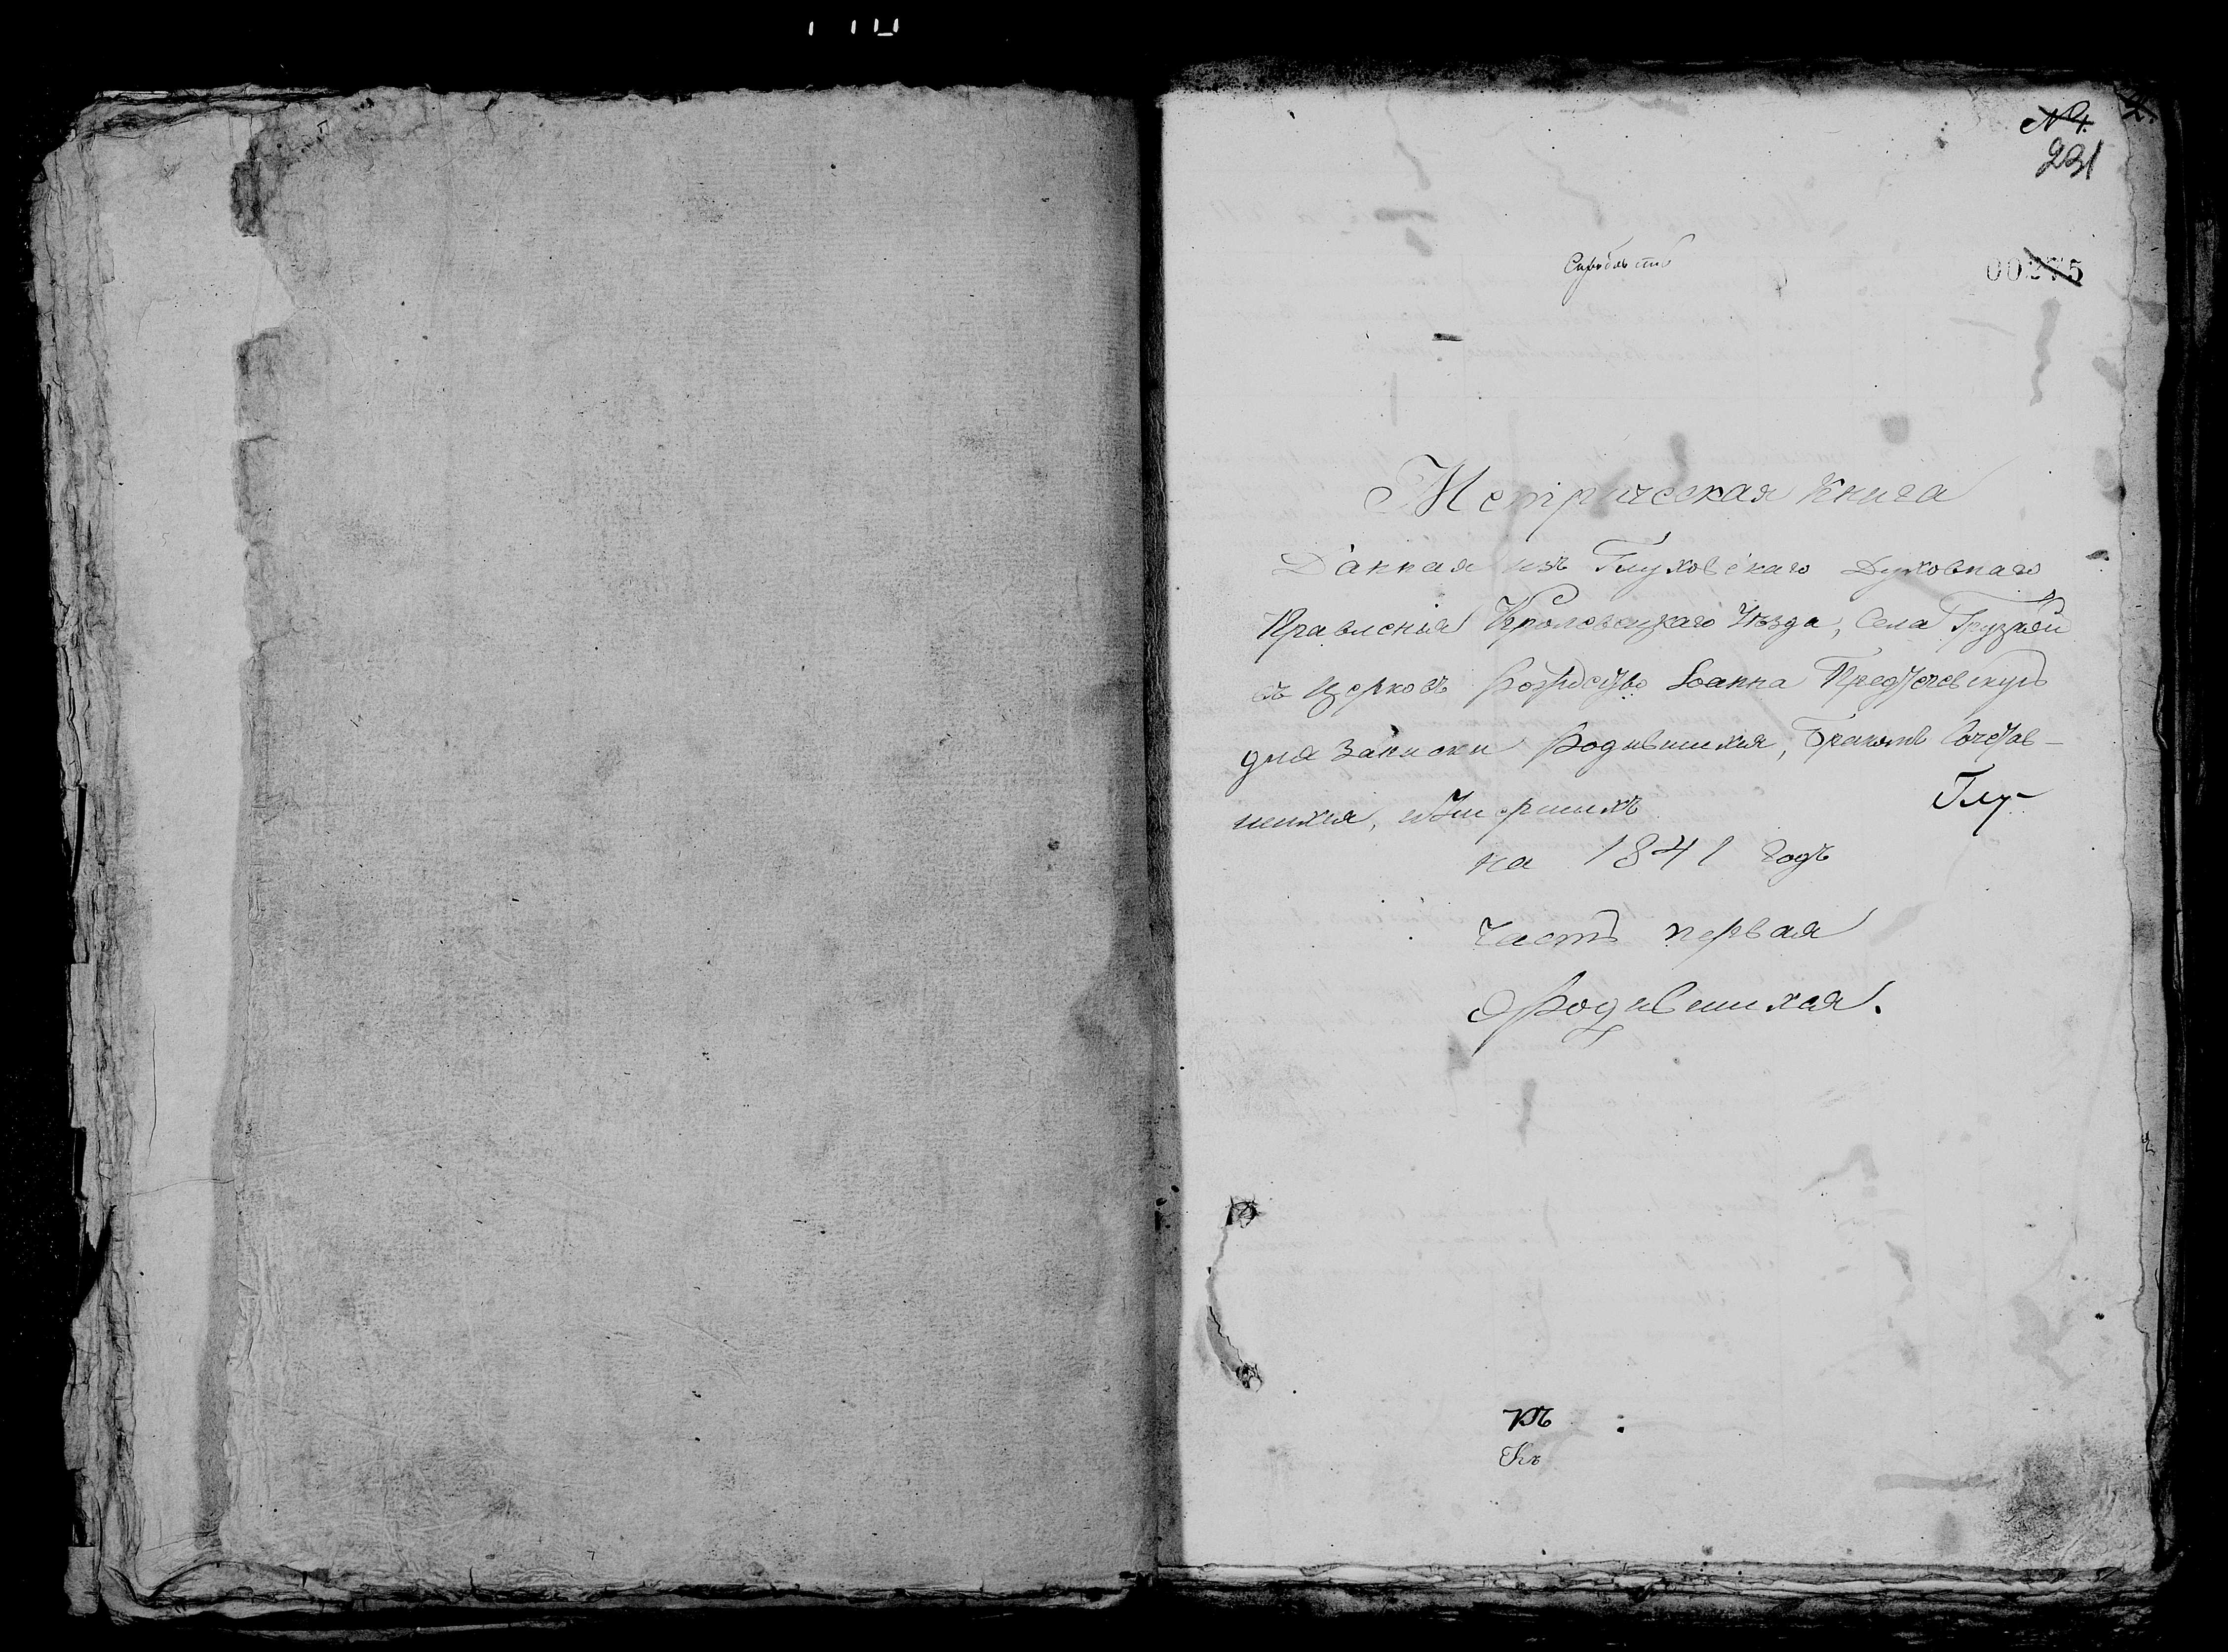 № 4.
231
00275
Метрическая Книга
Данная изъ Глуховскаго Духовнаго
Правленія Кролевецкаго Уѣзда, Села Грузкой
въ церковь Рождество Іоанна Предтечевскую
для записки Родившихся, Бракомъ Сочетав-
шихся, и Умершихъ
Глу-
на 1841 годъ
Часть первая
О Родившихся.
Къ